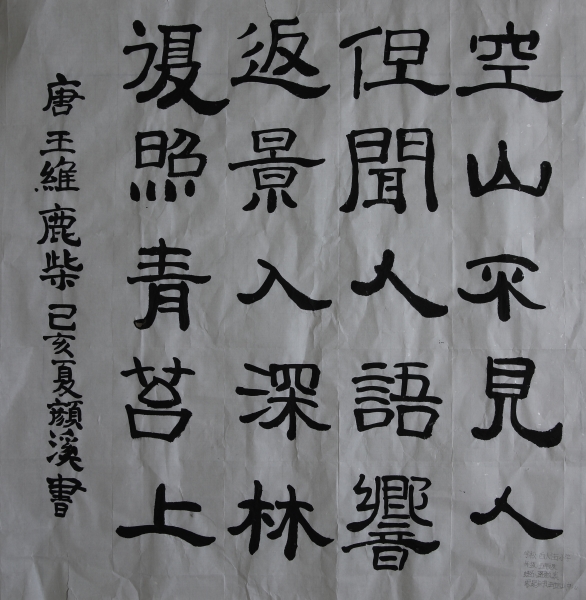 空山不見人
但聞人語響
返景入深林
復照青苔上
唐王維鹿柴己亥夏顏溪書